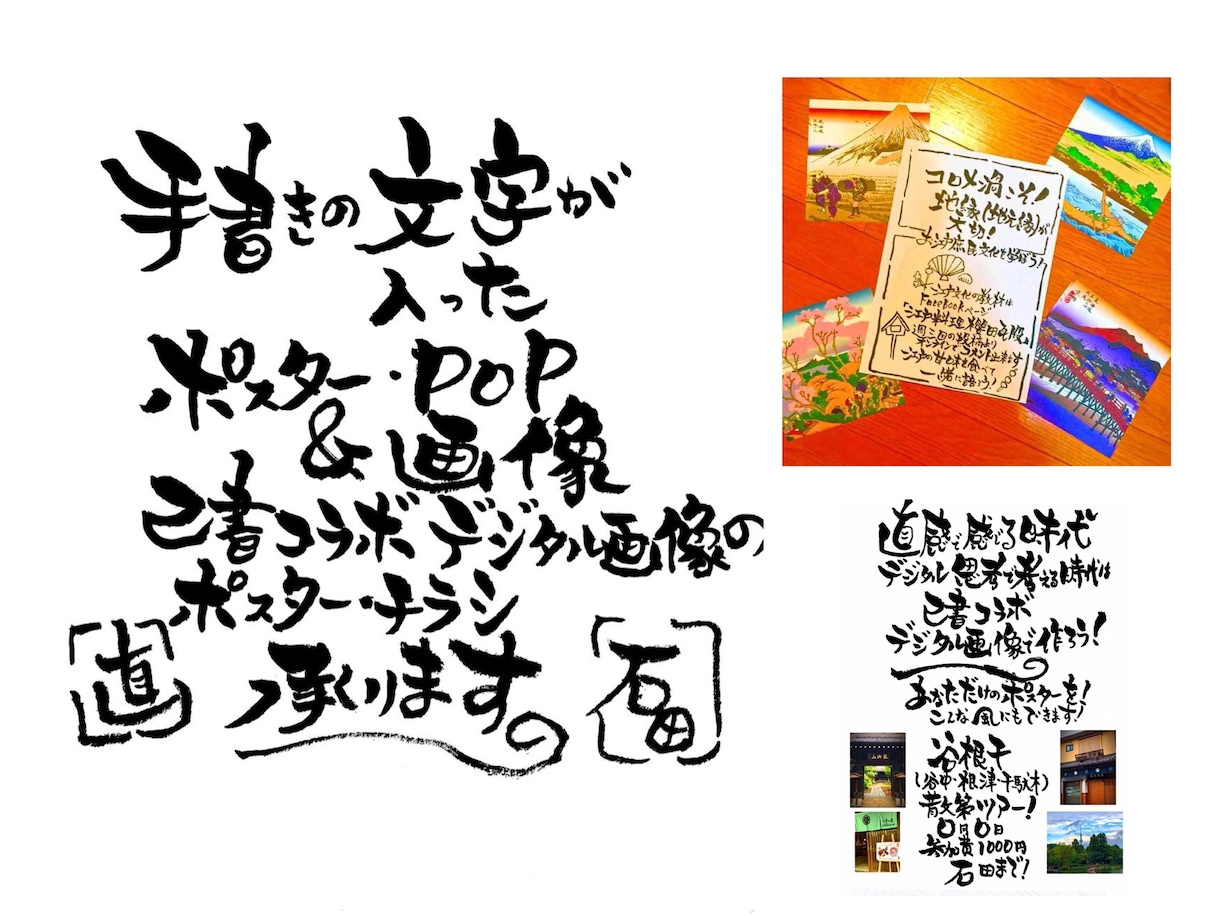 手書きの文字が
入った
ポスター・POP
&画像
己書コラボデジタル画像の
ポスター・チラシ
承ります。
直
石田
コロナ渦こそ!
地縁(地元の縁)が
大切!
お江戸庶民文化を学ぼう!
江戸文化の教科は
Facebookページ
江戸の甘味を食べて
一緒に語ろう!
直感で感じる時代
デジタル思考で考える時代は
己書コラボ
デジタル画像で作ろう!
あなただけのポスターを!
こんな風にもできます!
谷根千
(谷中・根津・千駄木)
散策ツアー!
0月0日
参加費1000円
石田まで!